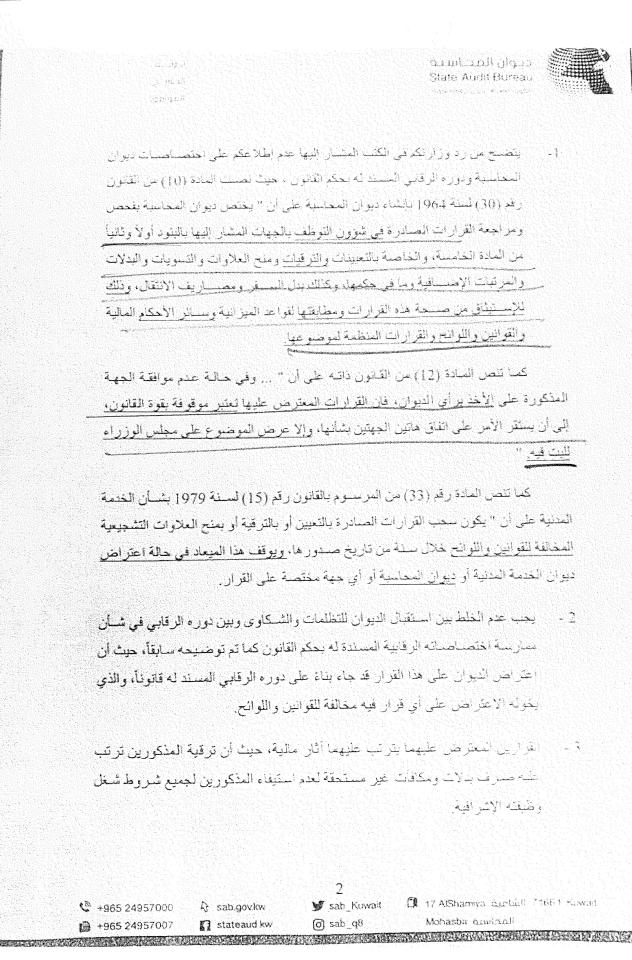 ديوان المحاسبة
State Audit Bureau
1- يتضح من رد وزارتكم في الكتب المشار إليها عدم اطلاعكم على اختصاصات ديوان
المحاسبة ودوره الرقابي المسند له بحكم القانون ، حيث نصت المادة (10) من القانون
رقم (30) لسنة 1964 بإنشاء ديوان المحاسبة على أن " يختص ديوان المحاسبة بفحص
ومراجعة القرارات الصادرة في شؤون التوظف بالجهات المشار إليها بالبنود أولاً وثانياً
من المادة الخامسة، والخاصة بالتعيينات والترقيات ومنح العلاوات والتسويات والبدلات
والمرتبات الإضافية وما في حكمها، وكذلك بدل السفر ومصاريف الانتقال، وذلك
للإستيثاق من صحة هذه القرارات ومطابقتها لقواعد الميزانية وسائر الأحكام المالية
والقوانين واللوائح والقرارات المنظمة لموضوعها.
كما تنص المادة (12) من القانون ذاته على أن " ... وفي حالة عدم موافقة الجهة
المذكورة على الأخذ برأي الديوان، فان القرارات المعترض عليها تعتبر موقوفة بقوة القانون،
إلى أن يستقر الأمر على اتفاق هاتين الجهتين بشأنها، وإلا عرض الموضوع على مجلس الوزراء
للبت فيه. "
كما تنص المادة رقم (33) من المرسوم بالقانون رقم (15) لسنة 1979 بشأن الخدمة
المدنية على أن " يكون سحب القرارات الصادرة بالتعيين أو بالترقية أو بمنح العلاوات التشجيعية
المخالفة للقوانين واللوائح خلال سنة من تاريخ صدورها، ويوقف هذا الميعاد في حالة اعتراض
ديوان الخدمة المدنية أو ديوان المحاسبة أو أي جهة مختصة على القرار.
2 - يجب عدم الخلط بين استقبال الديوان للتظلمات والشكاوى وبين دوره الرقابي في شأن
ممارسة اختصاصاته الرقابية المسندة له بحكم القانون كما تم توضيحه سابقاً، حيث أن
اعتراض الديوان على هذا القرار قد جاء بناءً على دوره الرقابي المسند له قانوناً، والذي
يخوله الاعتراض على أي قرار فيه مخالفة للقوانين واللوائح.
3 - القرارين المعترض عليهما يترتب عليهما آثار مالية، حيث أن ترقية المذكورين ترتب
عليه صرف بدلات ومكافآت غير مستحقة لعدم استيفاء المذكورين لجميع شروط شغل
وظيفته الاشرافية.
2
+965 24957000 sab.gov.kw sab_Kuwait 17 AlShamiya الشامية 71661 Kuwait
+965 24957007 stateaud.kw sab_q8 Mohasba المحاسبة